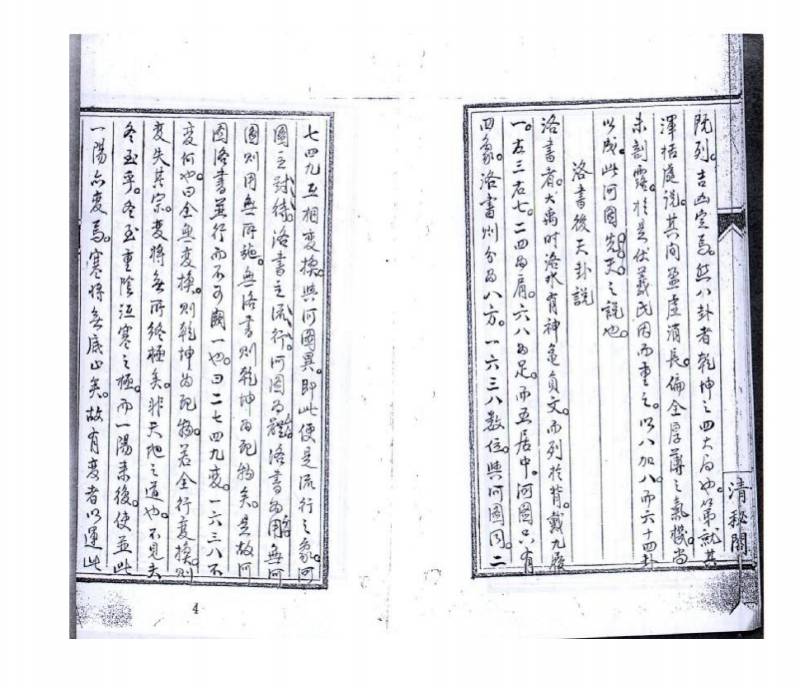 阮列。吉凶定焉。然八卦者乾坤之四大局也。第就其
渾括處說。其间盈虛消長。偏全厚薄之氣機。尚
未剖露。於是伏羲氏因而重之。以八加八而六十四卦
以成。此河圖先天之說也。
洛書後天卦說
洛書者。大禹时洛水有神龜負文。而列於背。戴九履
一。左三右七。二四為肩。六八為足。而五居中。河圖只有
四象。洛書则分为八方。一六三八数位。與河圖同。二
七四九互相変換。與河圖異。即此便是流行之象。河
圖主對待。洛書主流行。河圖为體。洛書为用。無河
圖則用無所施。無洛書則乾坤为死物矣。是故河
圖洛書並行而不可闕一也。曰二七四九変。一六三八不
変何也。曰全無変換。則乾坤为死物。若全行変換。則
変失其宗。変將無所終極矣。非天地之道也。不見夫
冬至乎。冬至重陰沍寒之極。而一陽来復。使並此
一陽亦変焉。寒將無底止矣。故有変者以運此
清秘閣
4